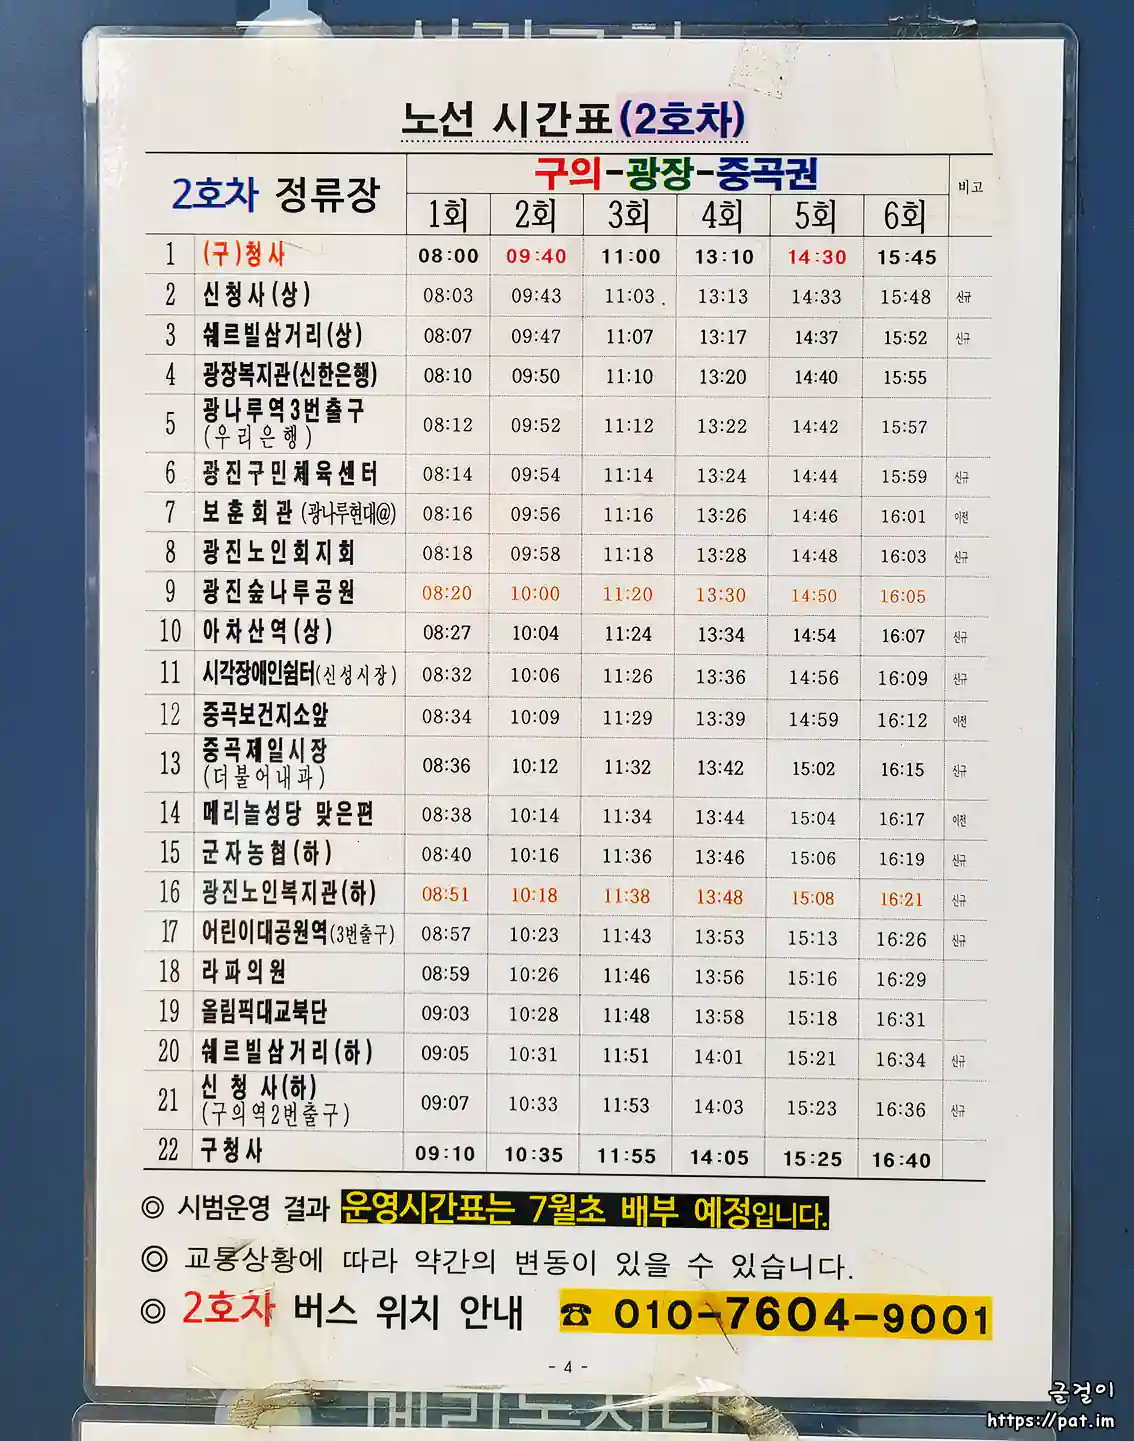 노선 시간표(2호차)
2호차 정류장 구의-광장-중곡권 비고
1회 2회 3회 4회 5회 6회
1 (구)청사 08:00 09:40 11:00 13:10 14:30 15:45
2 신청사(상) 08:03 09:43 11:03 13:13 14:33 15:48 신규
3 쉐르빌삼거리(상) 08:07 09:47 11:07 13:17 14:37 15:52 신규
4 광장복지관(신한은행) 08:10 09:50 11:10 13:20 14:40 15:55
5 광나루역3번출구 08:12 09:52 11:12 13:22 14:42 15:57
(우리은행)
6 광진구민체육센터 08:14 09:54 11:14 13:24 14:44 15:59 신규
7 보훈회관 (광나루현대@) 08:16 09:56 11:16 13:26 14:46 16:01 이전
8 광진노인회지회 08:18 09:58 11:18 13:28 14:48 16:03 신규
9 광진숲나루공원 08:20 10:00 11:20 13:30 14:50 16:05
10 아차산역(상) 08:27 10:04 11:24 13:34 14:54 16:07 신규
11 시각장애인쉼터(신성시장) 08:32 10:06 11:26 13:36 14:56 16:09 신규
12 중곡보건지소앞 08:34 10:09 11:29 13:39 14:59 16:12 이전
13 중곡제일시장 08:36 10:12 11:32 13:42 15:02 16:15 신규
(더불어내과)
14 메리놀성당 맞은편 08:38 10:14 11:34 13:44 15:04 16:17 이전
15 군자농협(하) 08:40 10:16 11:36 13:46 15:06 16:19 신규
16 광진노인복지관(하) 08:51 10:18 11:38 13:48 15:08 16:21 신규
17 어린이대공원역(3번출구) 08:57 10:23 11:43 13:53 15:13 16:26 신규
18 라파의원 08:59 10:26 11:46 13:56 15:16 16:29
19 올림픽대교북단 09:03 10:28 11:48 13:58 15:18 16:31
20 쉐르빌삼거리(하) 09:05 10:31 11:51 14:01 15:21 16:34 신규
21 신 청 사(하) 09:07 10:33 11:53 14:03 15:23 16:36 신규
(구의역2번출구)
22 구청사 09:10 10:35 11:55 14:05 15:25 16:40
◎ 시범운영 결과 운영시간표는 7월초 배부 예정입니다.
◎ 교통상황에 따라 약간의 변동이 있을 수 있습니다.
◎ 2호차 버스 위치 안내 ☎ 010-7604-9001
- 4 -
글걸이
https://pat.im